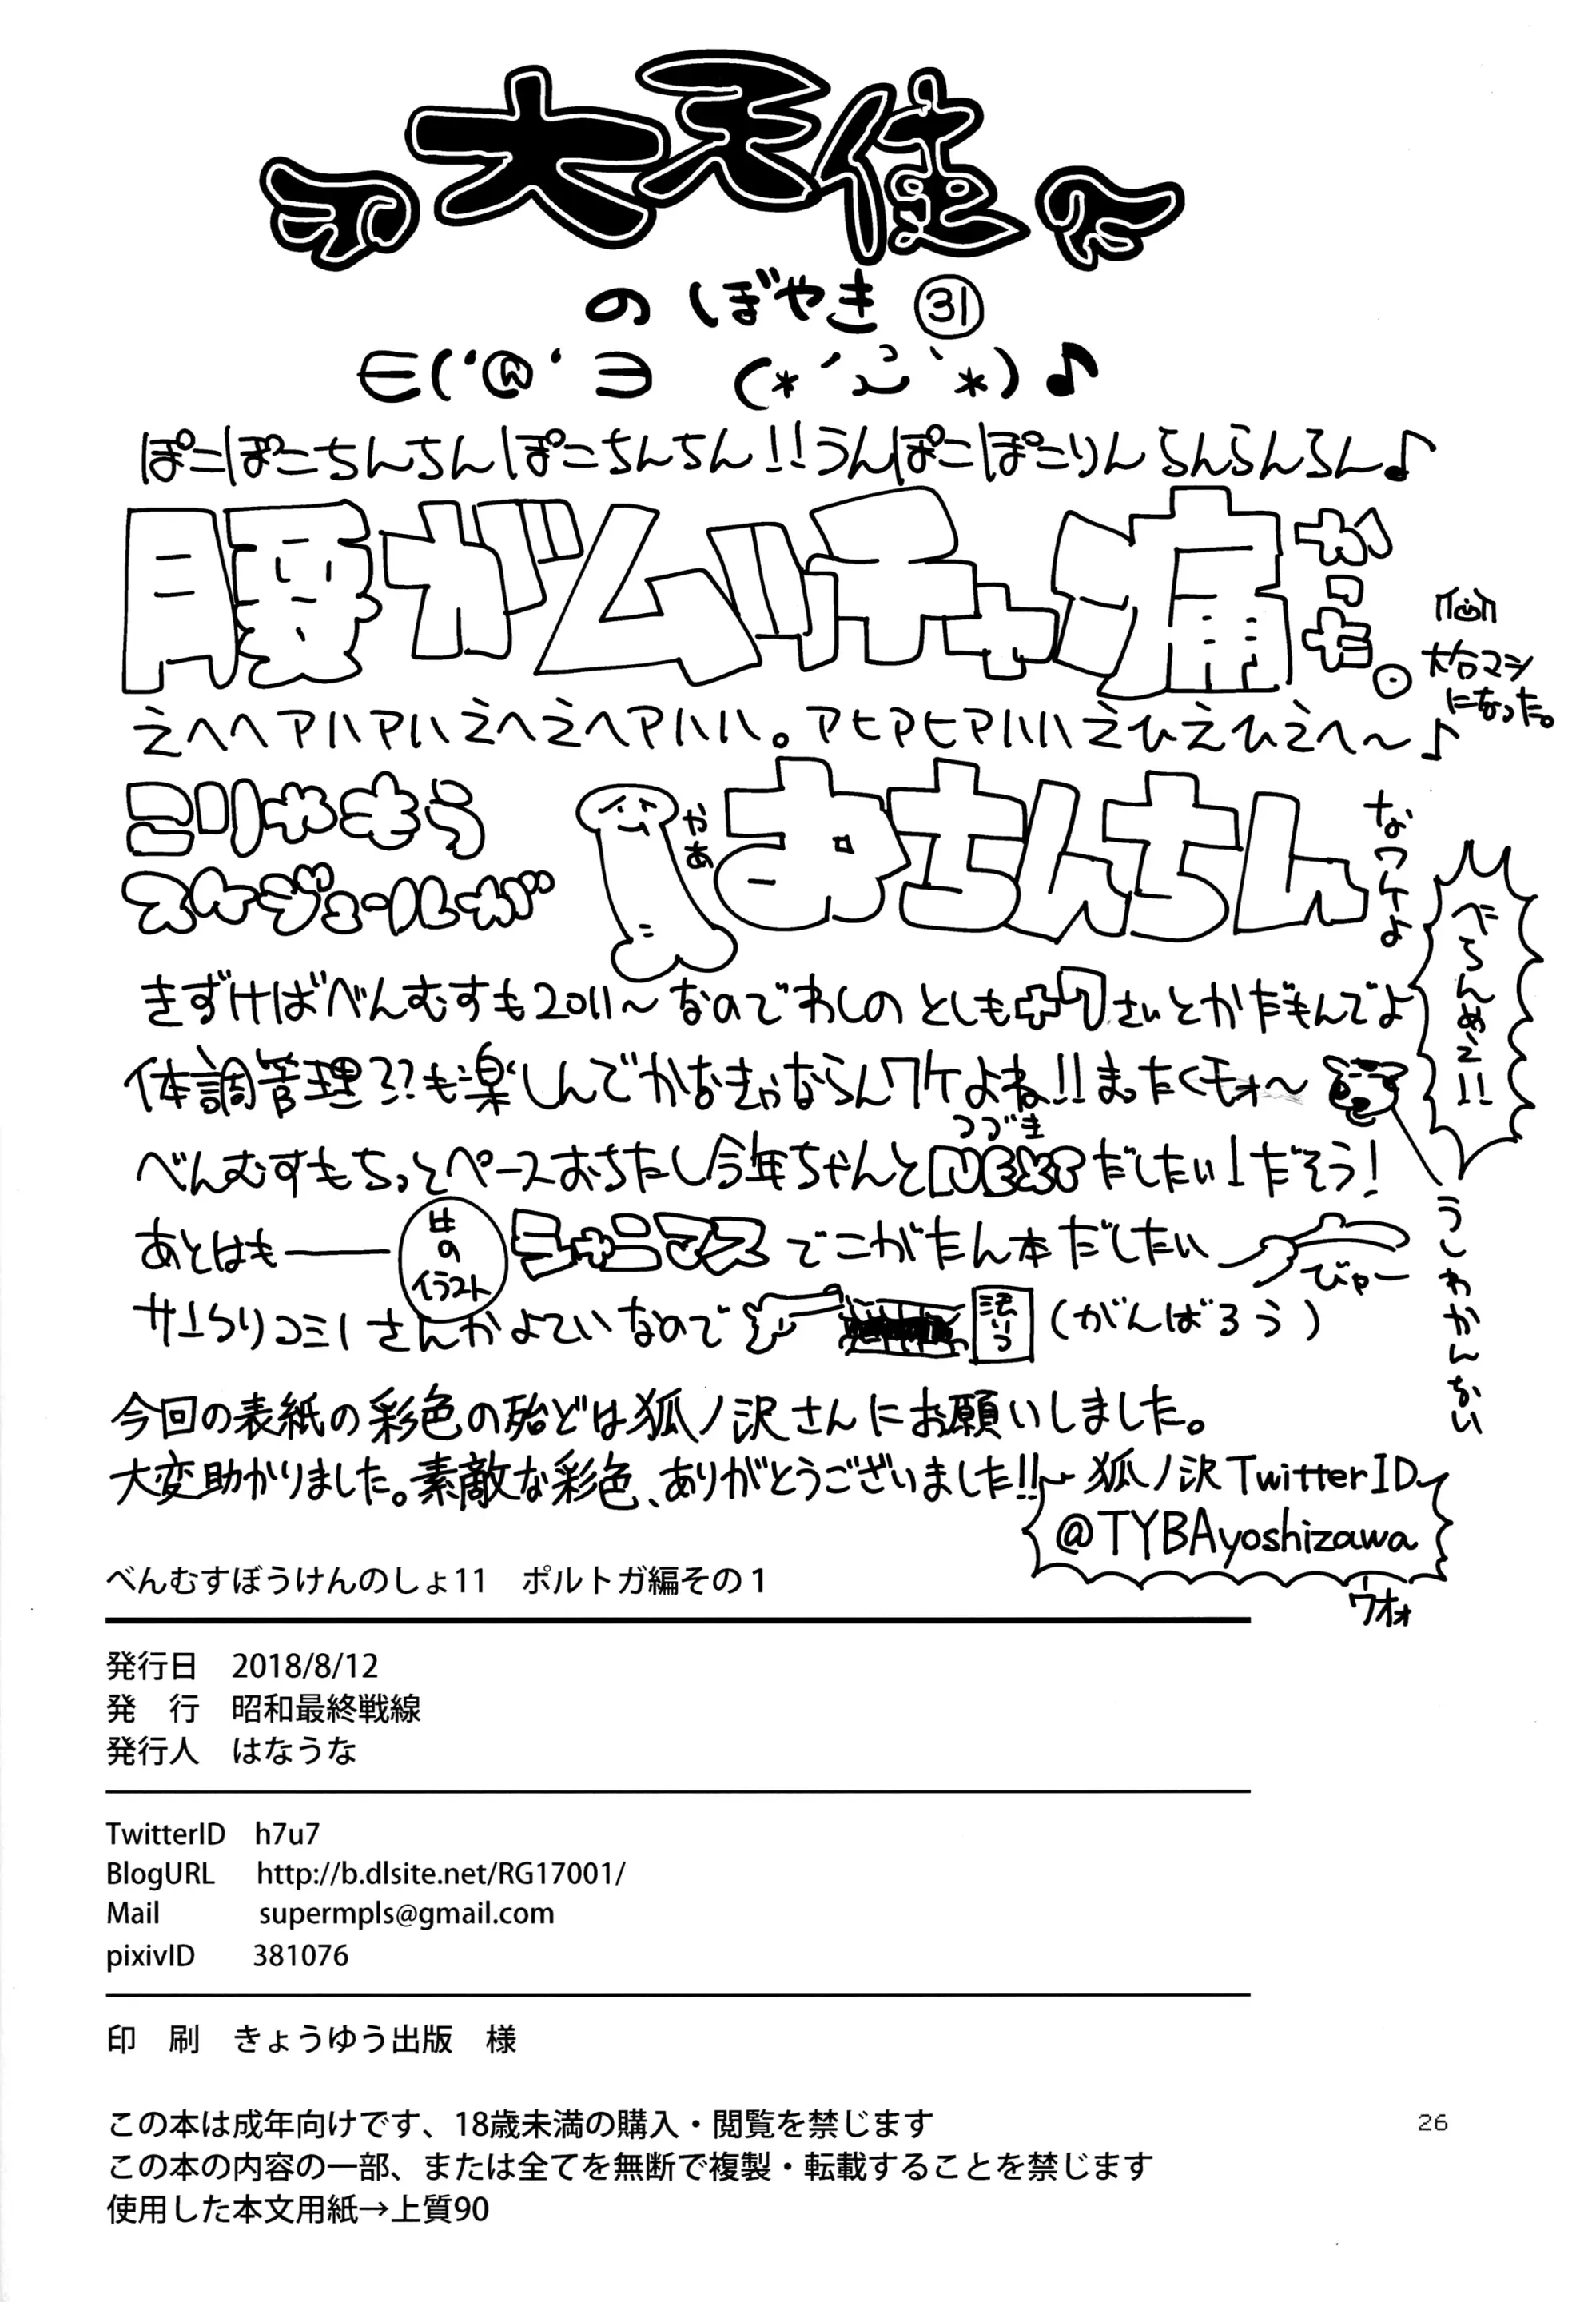 大天使
のぼやき㉛
∈('@'∋ (*´ ｀*)♪
ぽこぽこちんちんぽこちんちん!!うんぽこぽこりんらんらんらん♪
腰がムッチャ痛かった。
大台マシになった。
えへへアハアハえへえへアハハハ。アヒアヒアハハえひえひえへ〜♪
こりゃもう
スケジュールが
やあ
おちんちん
なワケよ
べらんめえ!!
きずけばべんむすも2011〜なのでわしのとしも
さいとかだもんでよ
体調管理??も楽しんでかなきゃならんワケよね!!まったくモォ〜
つづき
べんむすもちっとペースおちたし今年ちゃんとNEXTだしたい！だそう！
うしわかんない
あとはもー
のイラスト
シャニマスでこがたん本だしたい
びゃー
コミ1さんかよていなので
(がんばろう)
今回の表紙の彩色の殆どは狐ノ沢さんにお願いしました。
大変助かりました。素敵な彩色、ありがとうございました!!
狐ノ沢TwitterID
@TYBAyoshizawa
ウオォ
べんむすぼうけんのしょ11　ポルトガ編その1
発行日　2018/8/12
発　行　昭和最終戦線
発行人　はなうな
TwitterID　h7u7
BlogURL　http://b.dlsite.net/RG17001/
Mail　supermpls@gmail.com
pixivID　381076
印　刷　きょうゆう出版　様
この本は成年向けです、18歳未満の購入・閲覧を禁じます
この本の内容の一部、または全てを無断で複製・転載することを禁じます
使用した本文用紙→上質90
26